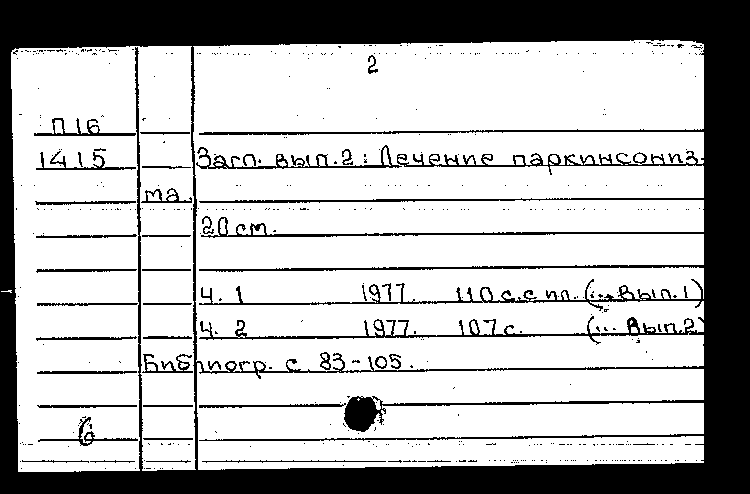 2
П16
1415
Загл. вып.2: Лечение паркинсониз-
ма.
20 см.
Ч. 1 1977. 110 с. с ил. (... Вып.1)
Ч. 2 1977. 107 с. (... Вып.2)
Библиогр. с. 83-105.
6